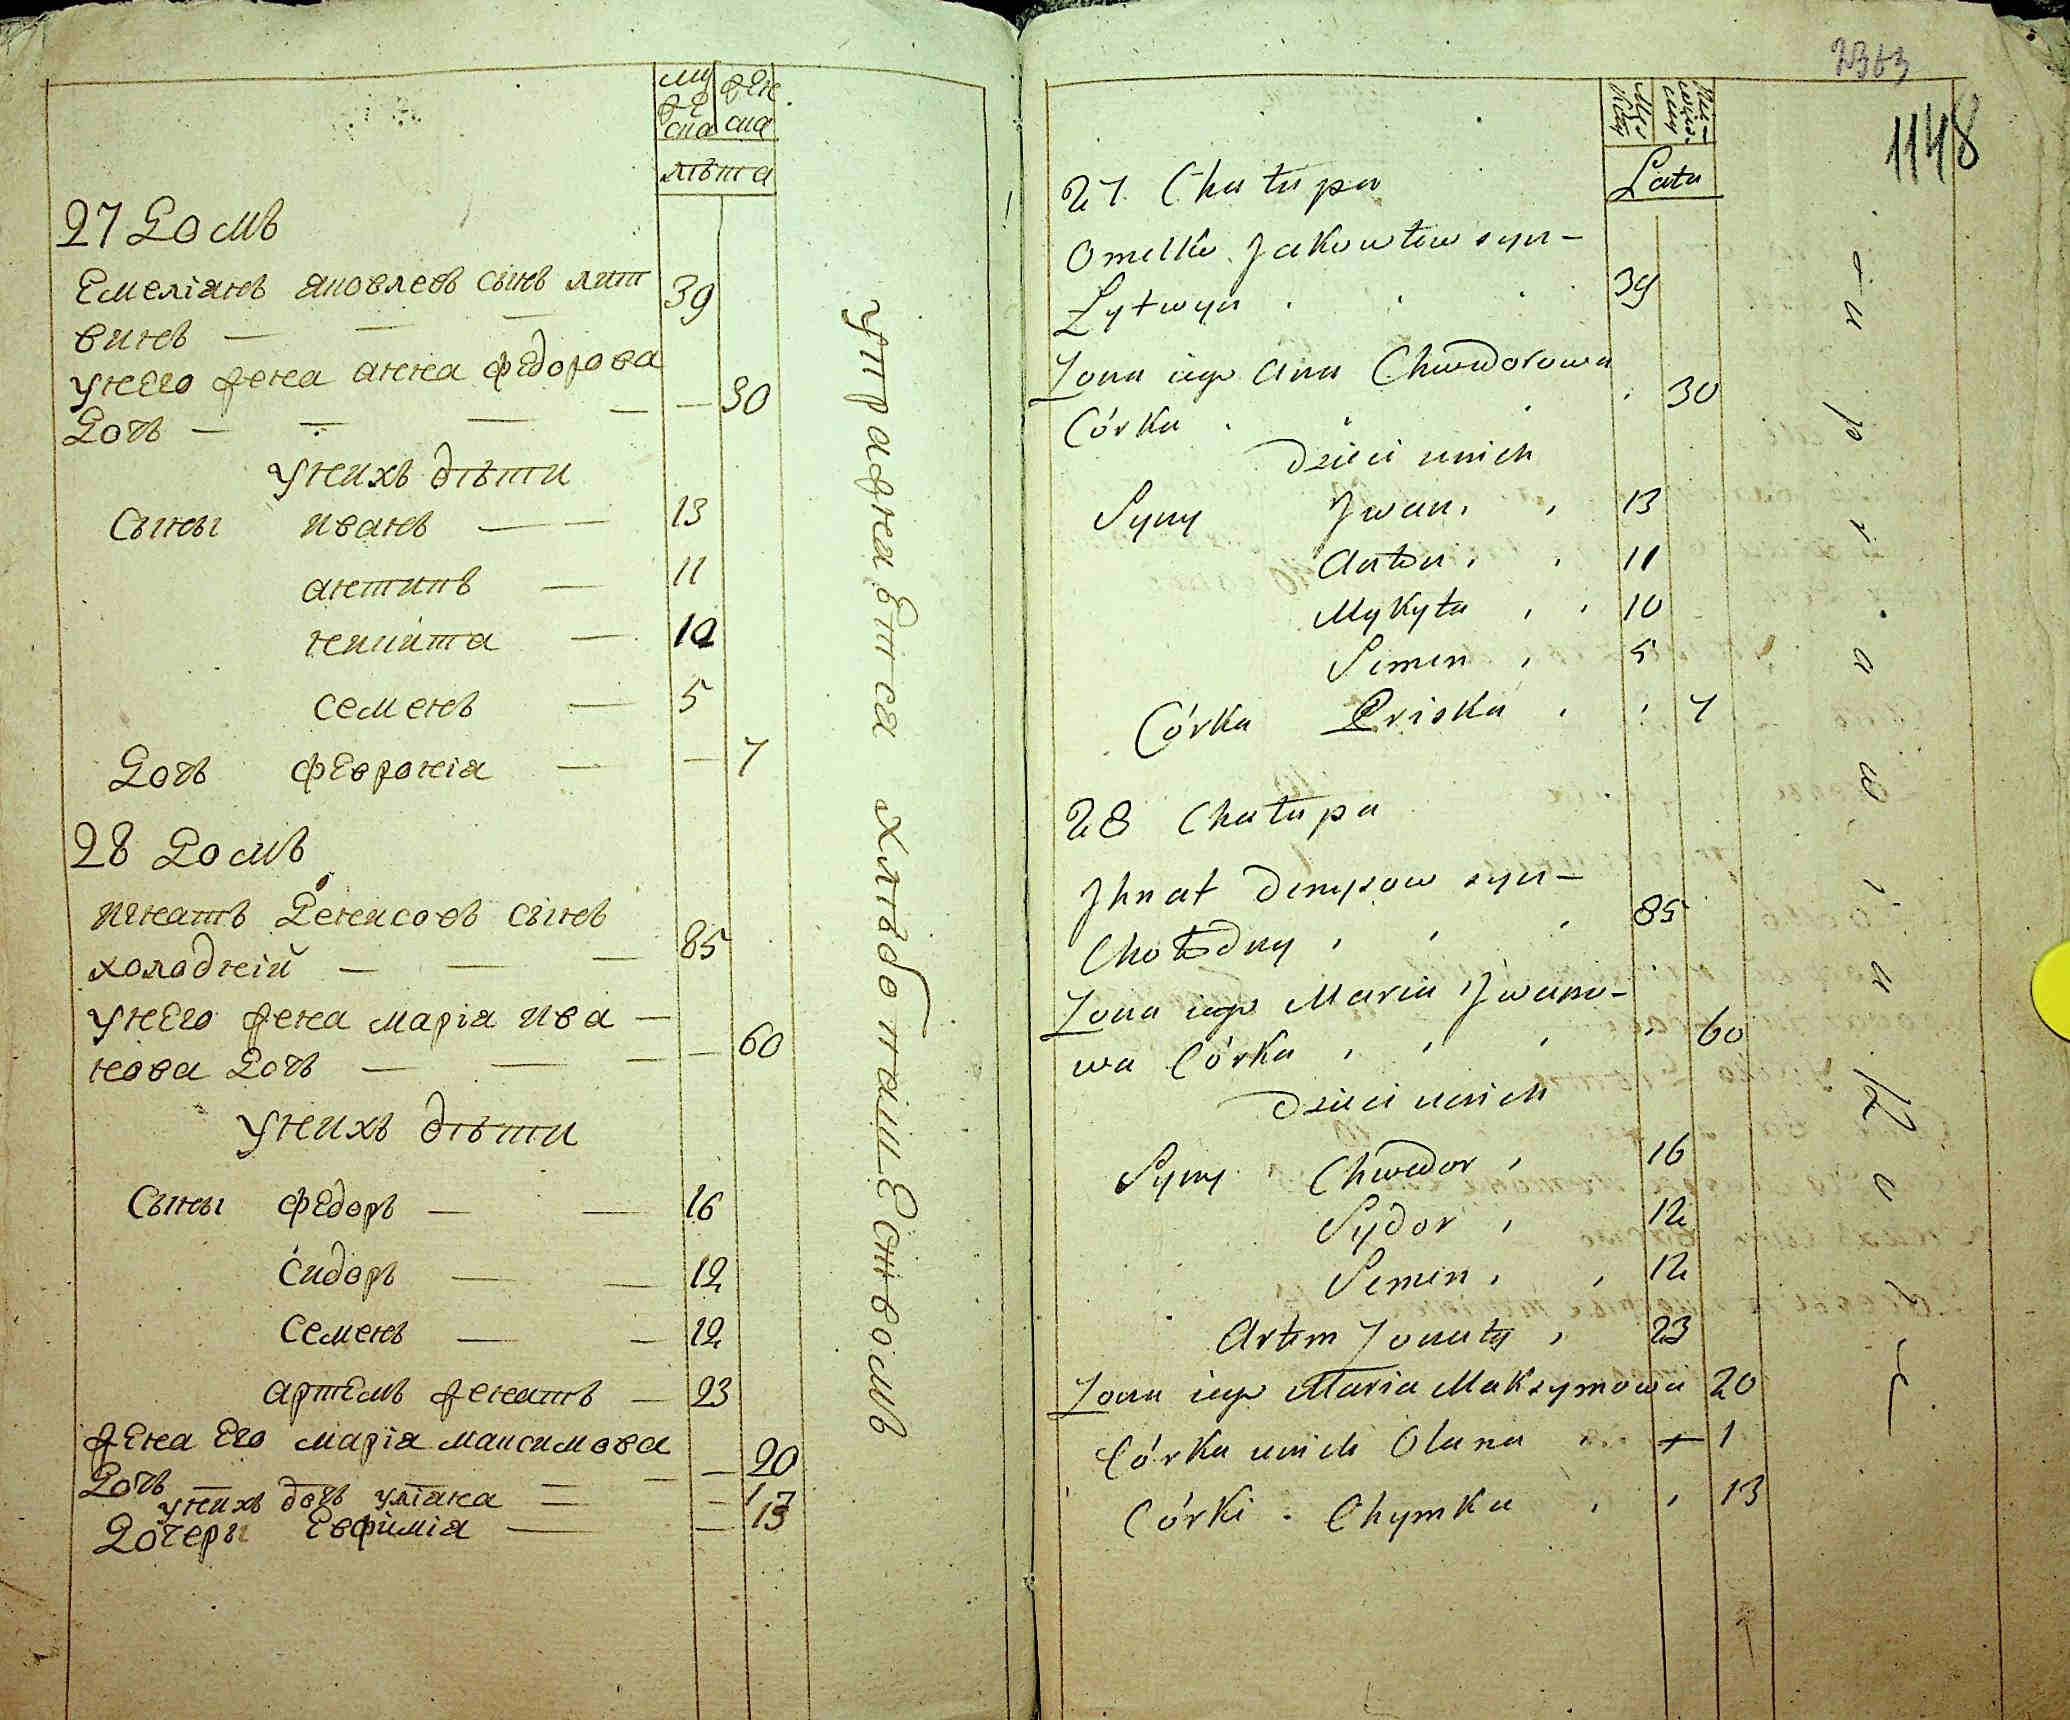 му
же
ска
жен
ска
лѣта
27 Домъ
Емеліанъ яковлевъ сынъ лит
винъ — — — 39
унего жена анна федорова
Дочь — — — — — 30
унихъ дѣти
Сыны иванъ — — 13
антипъ — 11
никита — 10
семенъ — 5
Дочь февронія — — 7
28 Домъ
игнатъ Денисовъ сынъ
холодній — — — 85
унего жена марія ива —
нова Дочь — — — — 60
унихъ дѣти
Сыны федоръ — — 16
сидоръ — — 12
семенъ — — 12
артемъ женатъ — 23
жена его марія максимова
Дочь — — — — — 20
унихъ дочь уліана — — 1
Дочеры Евфимія — — 13
упражняется хлѣбопашествомъ
2363
1148
Lata
27 Chałupa
Omelko Jakowłew syn –
Lytwyn . . . . 39
Żona iego Ana Chwedorowa
Córka . . . . 30
Dzieci unich
Syny Jwan . , 13
Anton . . 11
Mykyta , , 10
Semen , 5
Córka Priska . , 7
28 Chałupa
Jhnat Denysow syn –
Chołodny , , , 85
Żona iego Maria Jwano –
wa Córka , , , , 60
Dzieci unich
Syny Chwedor , 16
Sydor , 12
Semen , , 12
Artem Żonaty , 23
Żona iego Maria Maksymowa 20
Córka unich Olana . + 1
Córki . Chymka , , 13